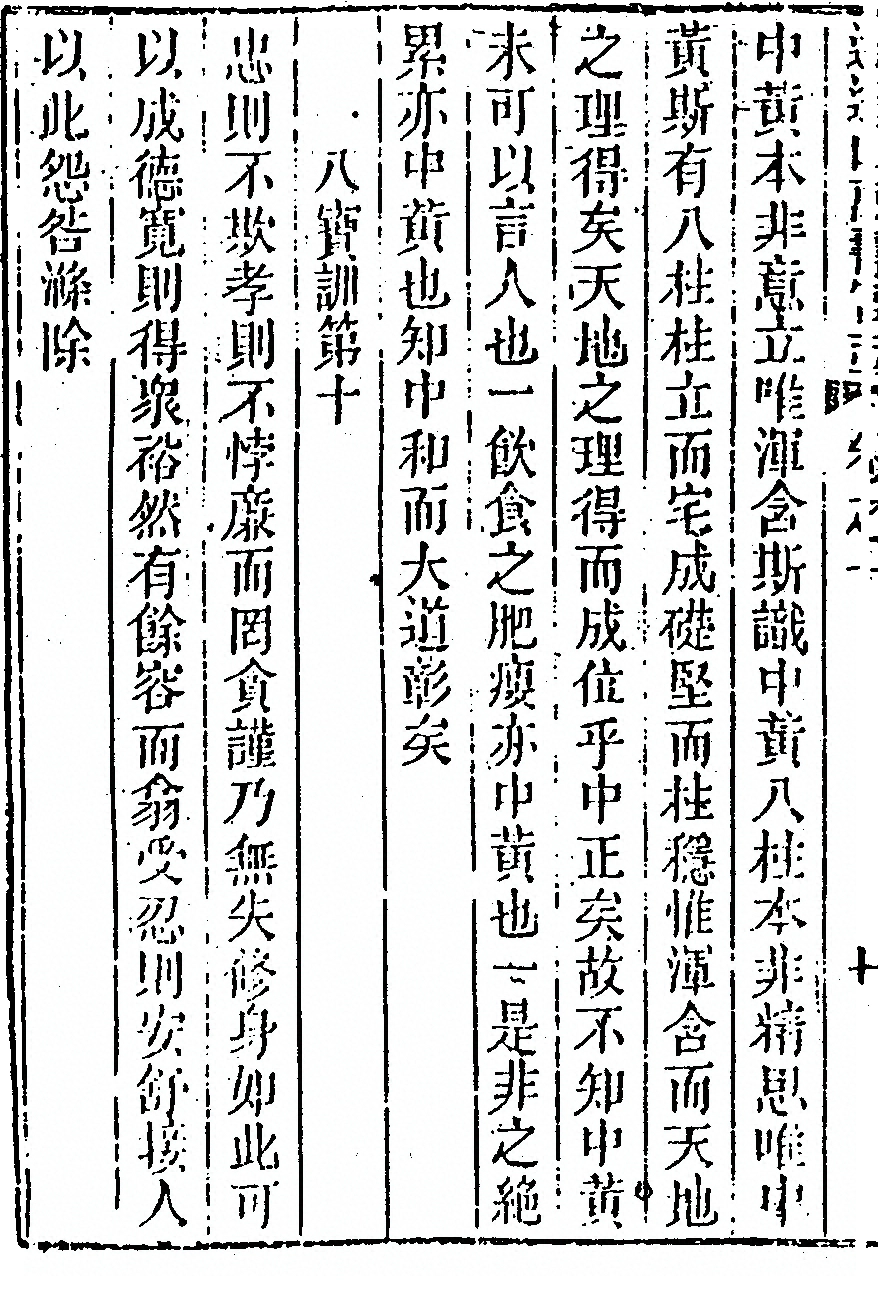 中黃本非意立唯渾含斯識中黃八柱本非精思唯中
黃斯有八柱柱立而宅成礎堅而柱穩惟渾含而天地
之理得矣天地之理得而成位乎中正矣故不知中黃
未可以言人也一飲食之肥瘦亦中黃也一是非之絕
累亦中黃也知中和而大道彰矣
八寶訓第十
忠則不欺孝則不悖廉而罔貪謹乃無失修身如此可
以成德寬則得眾裕然有餘容而翕受忍則安舒接人
以此怨咎滌除
十